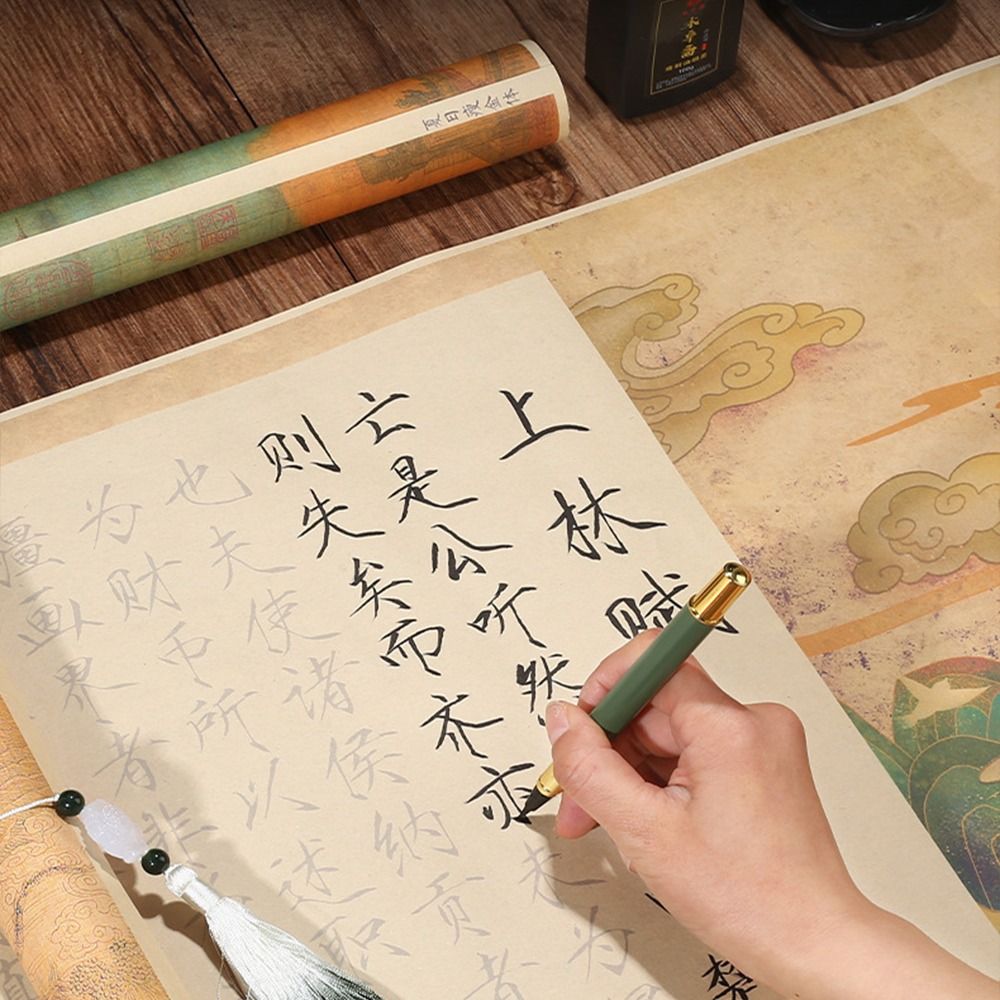 上林赋
亡是公听然
楚
则失矣而齐亦未为
也夫使诸侯纳贡者
为财币所以述职
疆画界者非
夏日瘦金体
100g